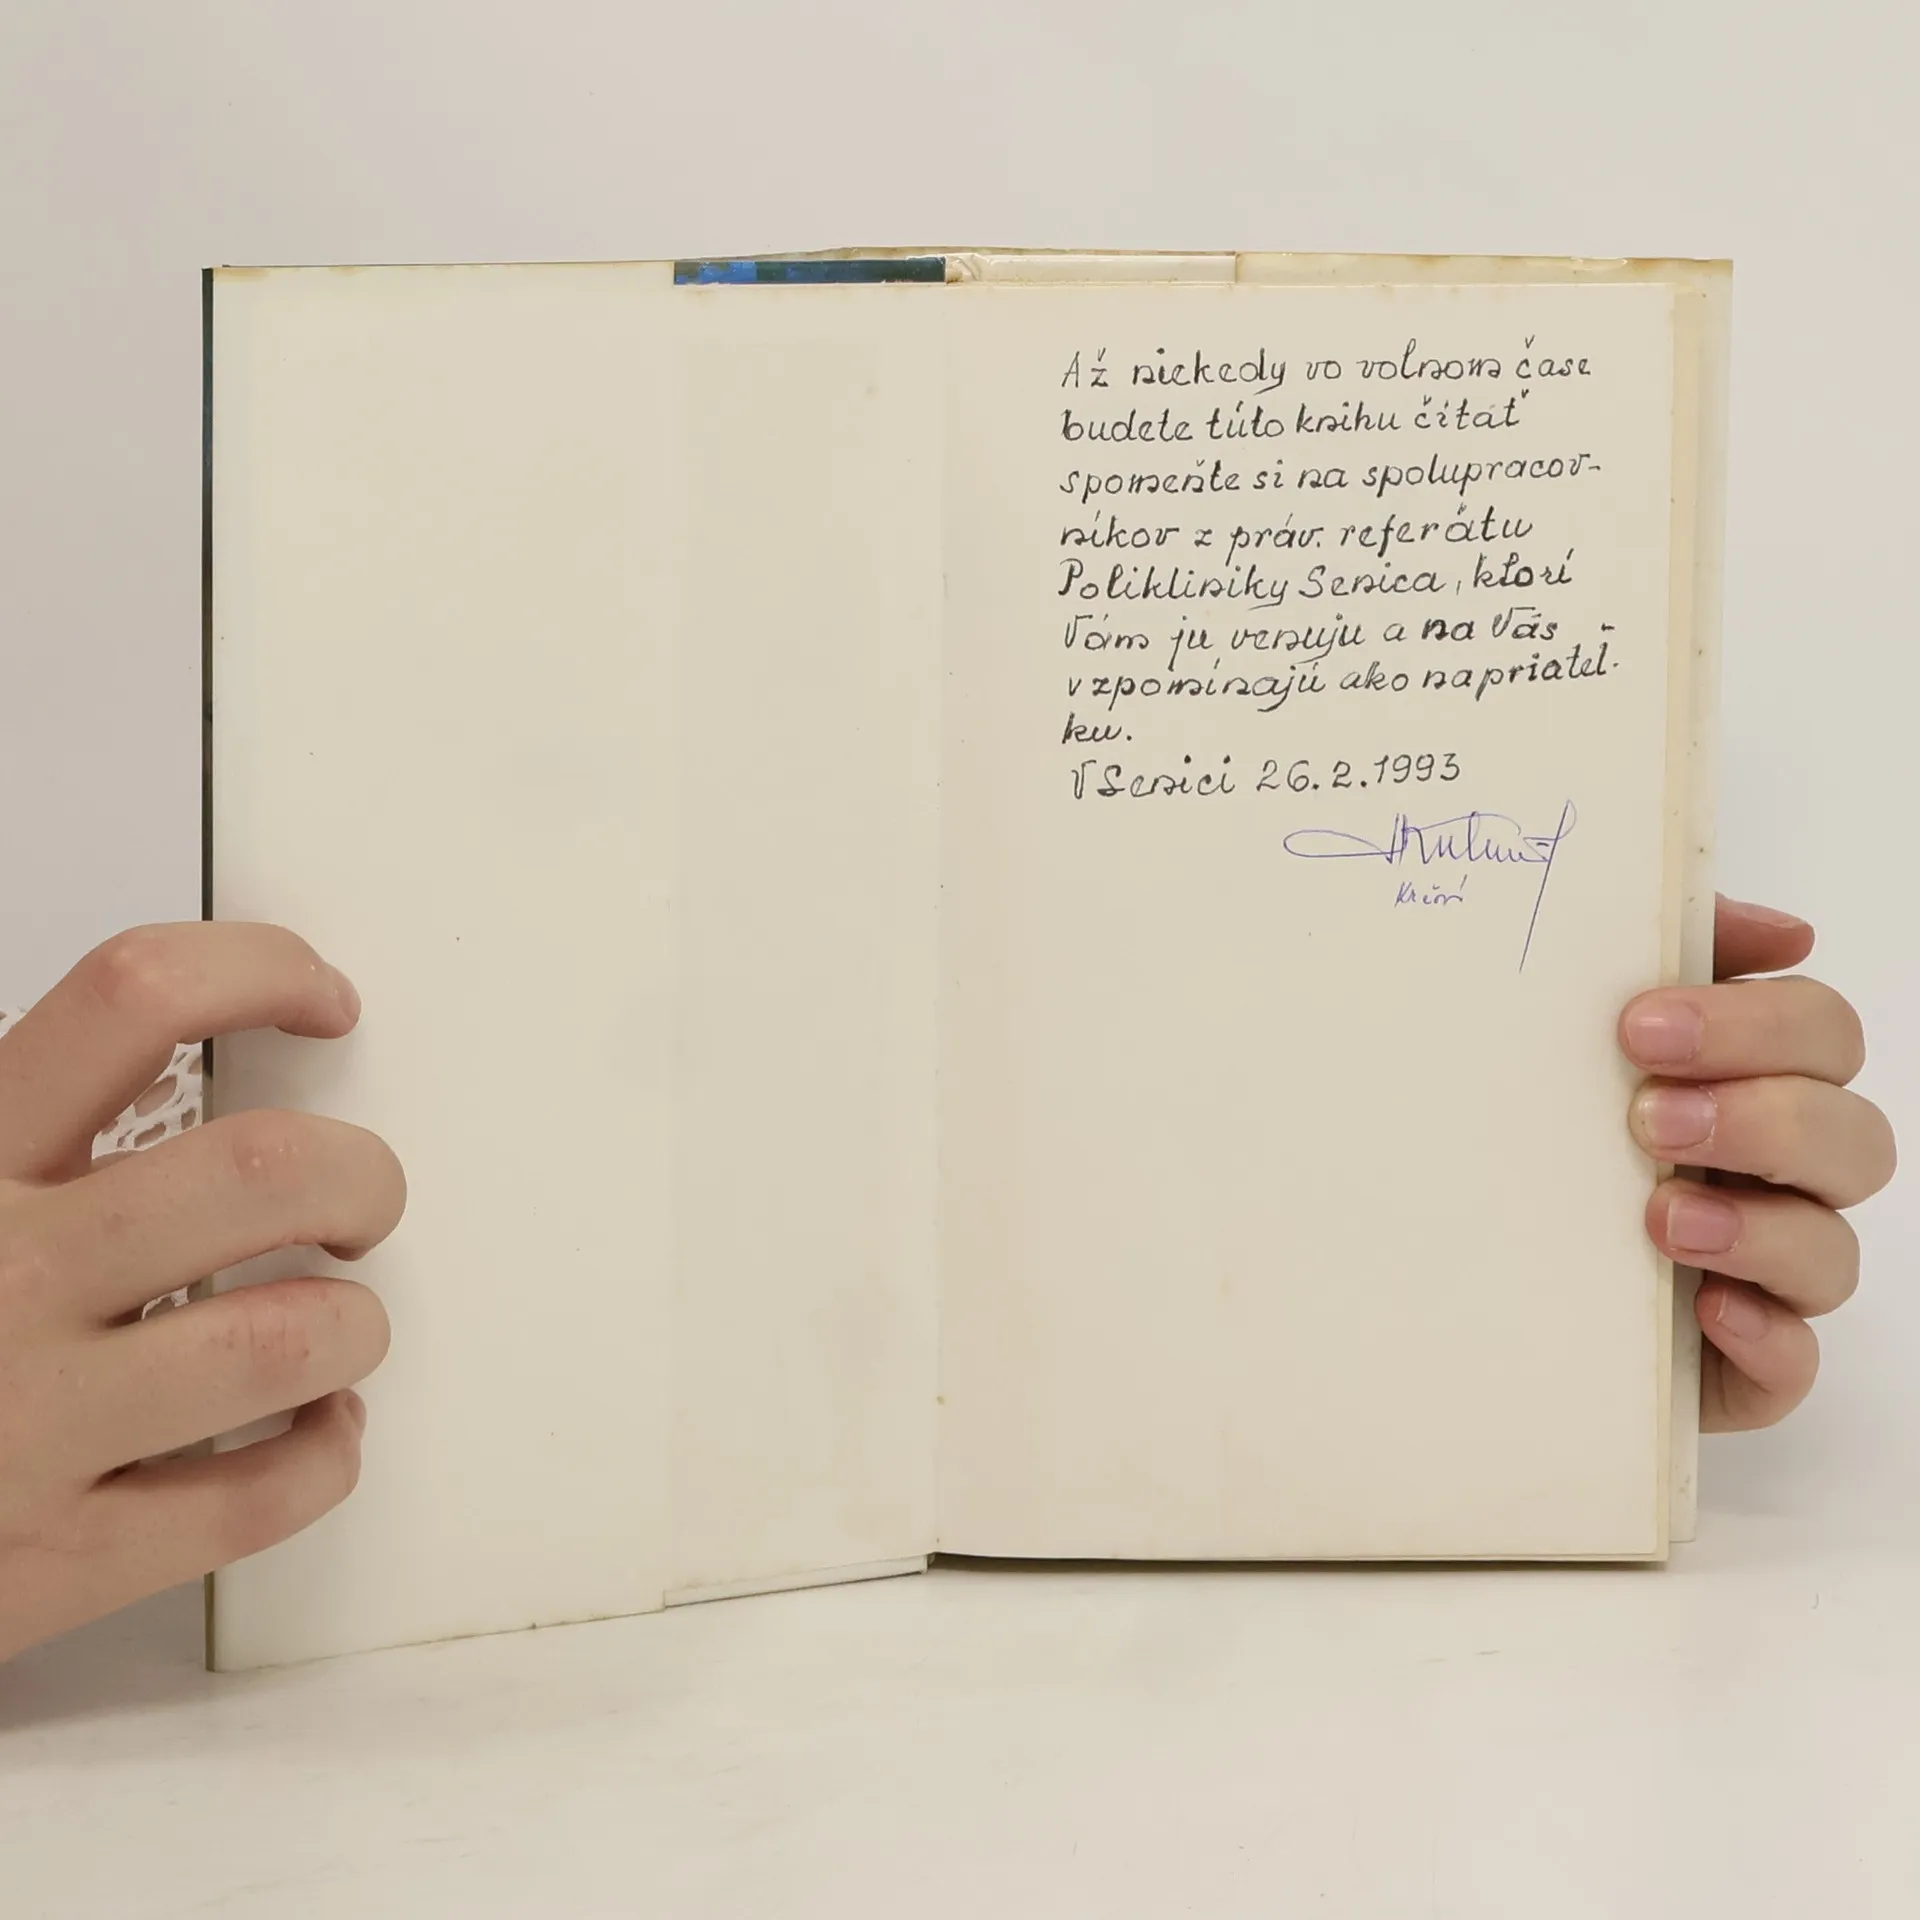 Až niekedy vo volnom čase
budete túto knihu čítať
spomeňte si na spolupracov-
níkov z práv. referátu
Polikliniky Senica, ktorí
Vám ju venuju a na Vás
vzpomínajú ako na priateľ-
ku.
V Senici 26.2.1993